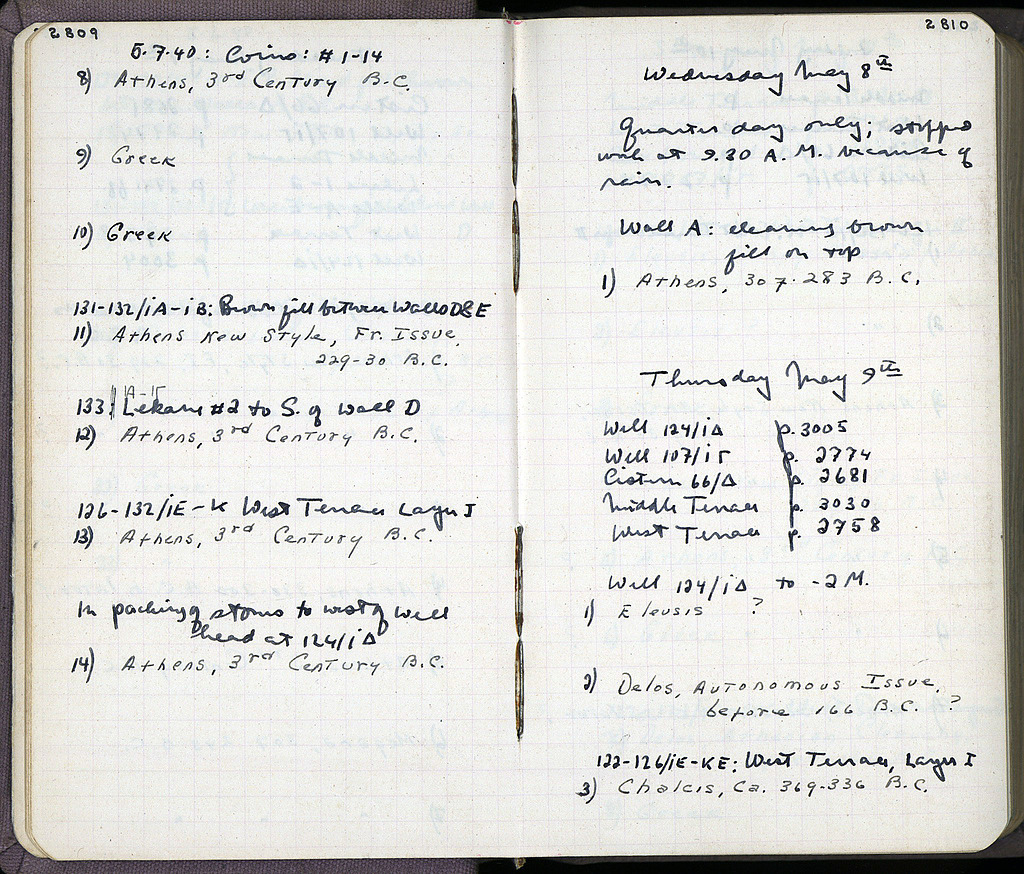 2809
5.7.40: Coins: #1-14
8) Athens, 3rd Century B.C.
9) Greek
10) Greek
131-132/ΙΑ-ΙΒ: Brown fill between Walls D&E
11) Athens New Style, Fr. Issue,
229-30 B.C.
ΙΑ-ΙΓ
133: Lekane #2 to S. of Wall D
12) Athens, 3rd Century B.C.
126-132/ΙΕ-Κ West Terrace Layer I
13) Athens, 3rd Century B.C.
In packing of stones to west of well
head at 124/ΙΔ
14) Athens, 3rd Century B.C.
2810
Wednesday May 8th
Quarter day only; stopped
work at 9.30 A.M. because of
rain.
Wall A: cleaning brown
fill on top
1) Athens, 307-283 B.C.
Thursday May 9th
Well 124/ΙΔ p. 3005
Well 107/ΙΓ p. 2774
Cistern 66/Δ p. 2681
Middle Terrace p. 3030
West Terrace p. 2758
Well 124/ΙΔ to -2 M.
1) Eleusis ?
2) Delos, Autonomous Issue,
before 166 B.C. ?
122-126/ΙΕ-ΚΕ: West Terrace, Layer I
3) Chalcis, Ca. 369-336 B.C.